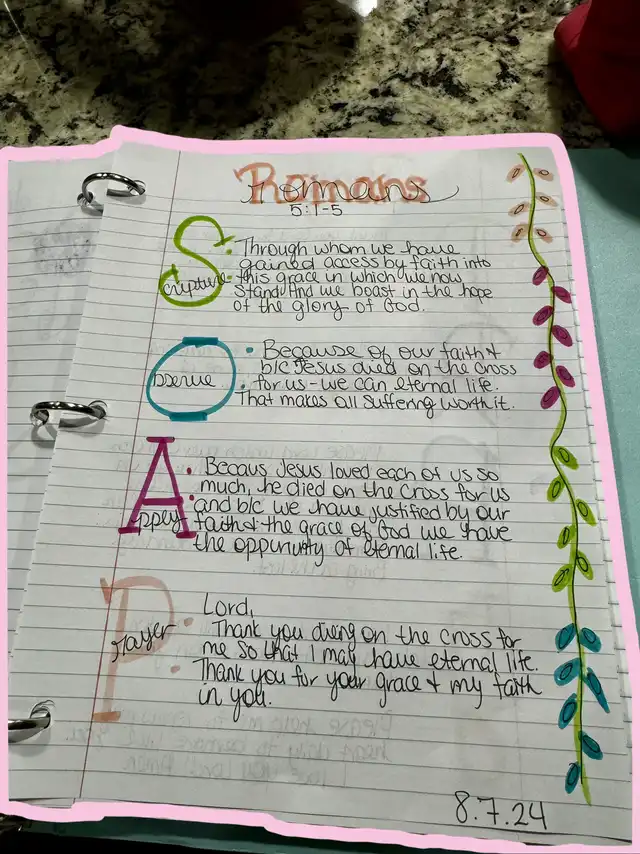 Romans
5:1-5
Scripture: Through whom we have
gained access by faith into
this grace in which we now
Stand. And we boast in the hope
of the glory of God.
Observe: Because of our faith +
b/c Jesus died on the cross
for us - we can eternal life.
That makes all suffering worth it.
Apply: Becaus Jesus loved each of us so
much, he died on the cross for us
and b/c we have justified by our
faith + the grace of God we have
the oppurunity of eternal life.
Prayer: Lord,
Thank you dying on the cross for
me so that I may have eternal life.
Thank you for your grace + my faith
in you.
8.7.24